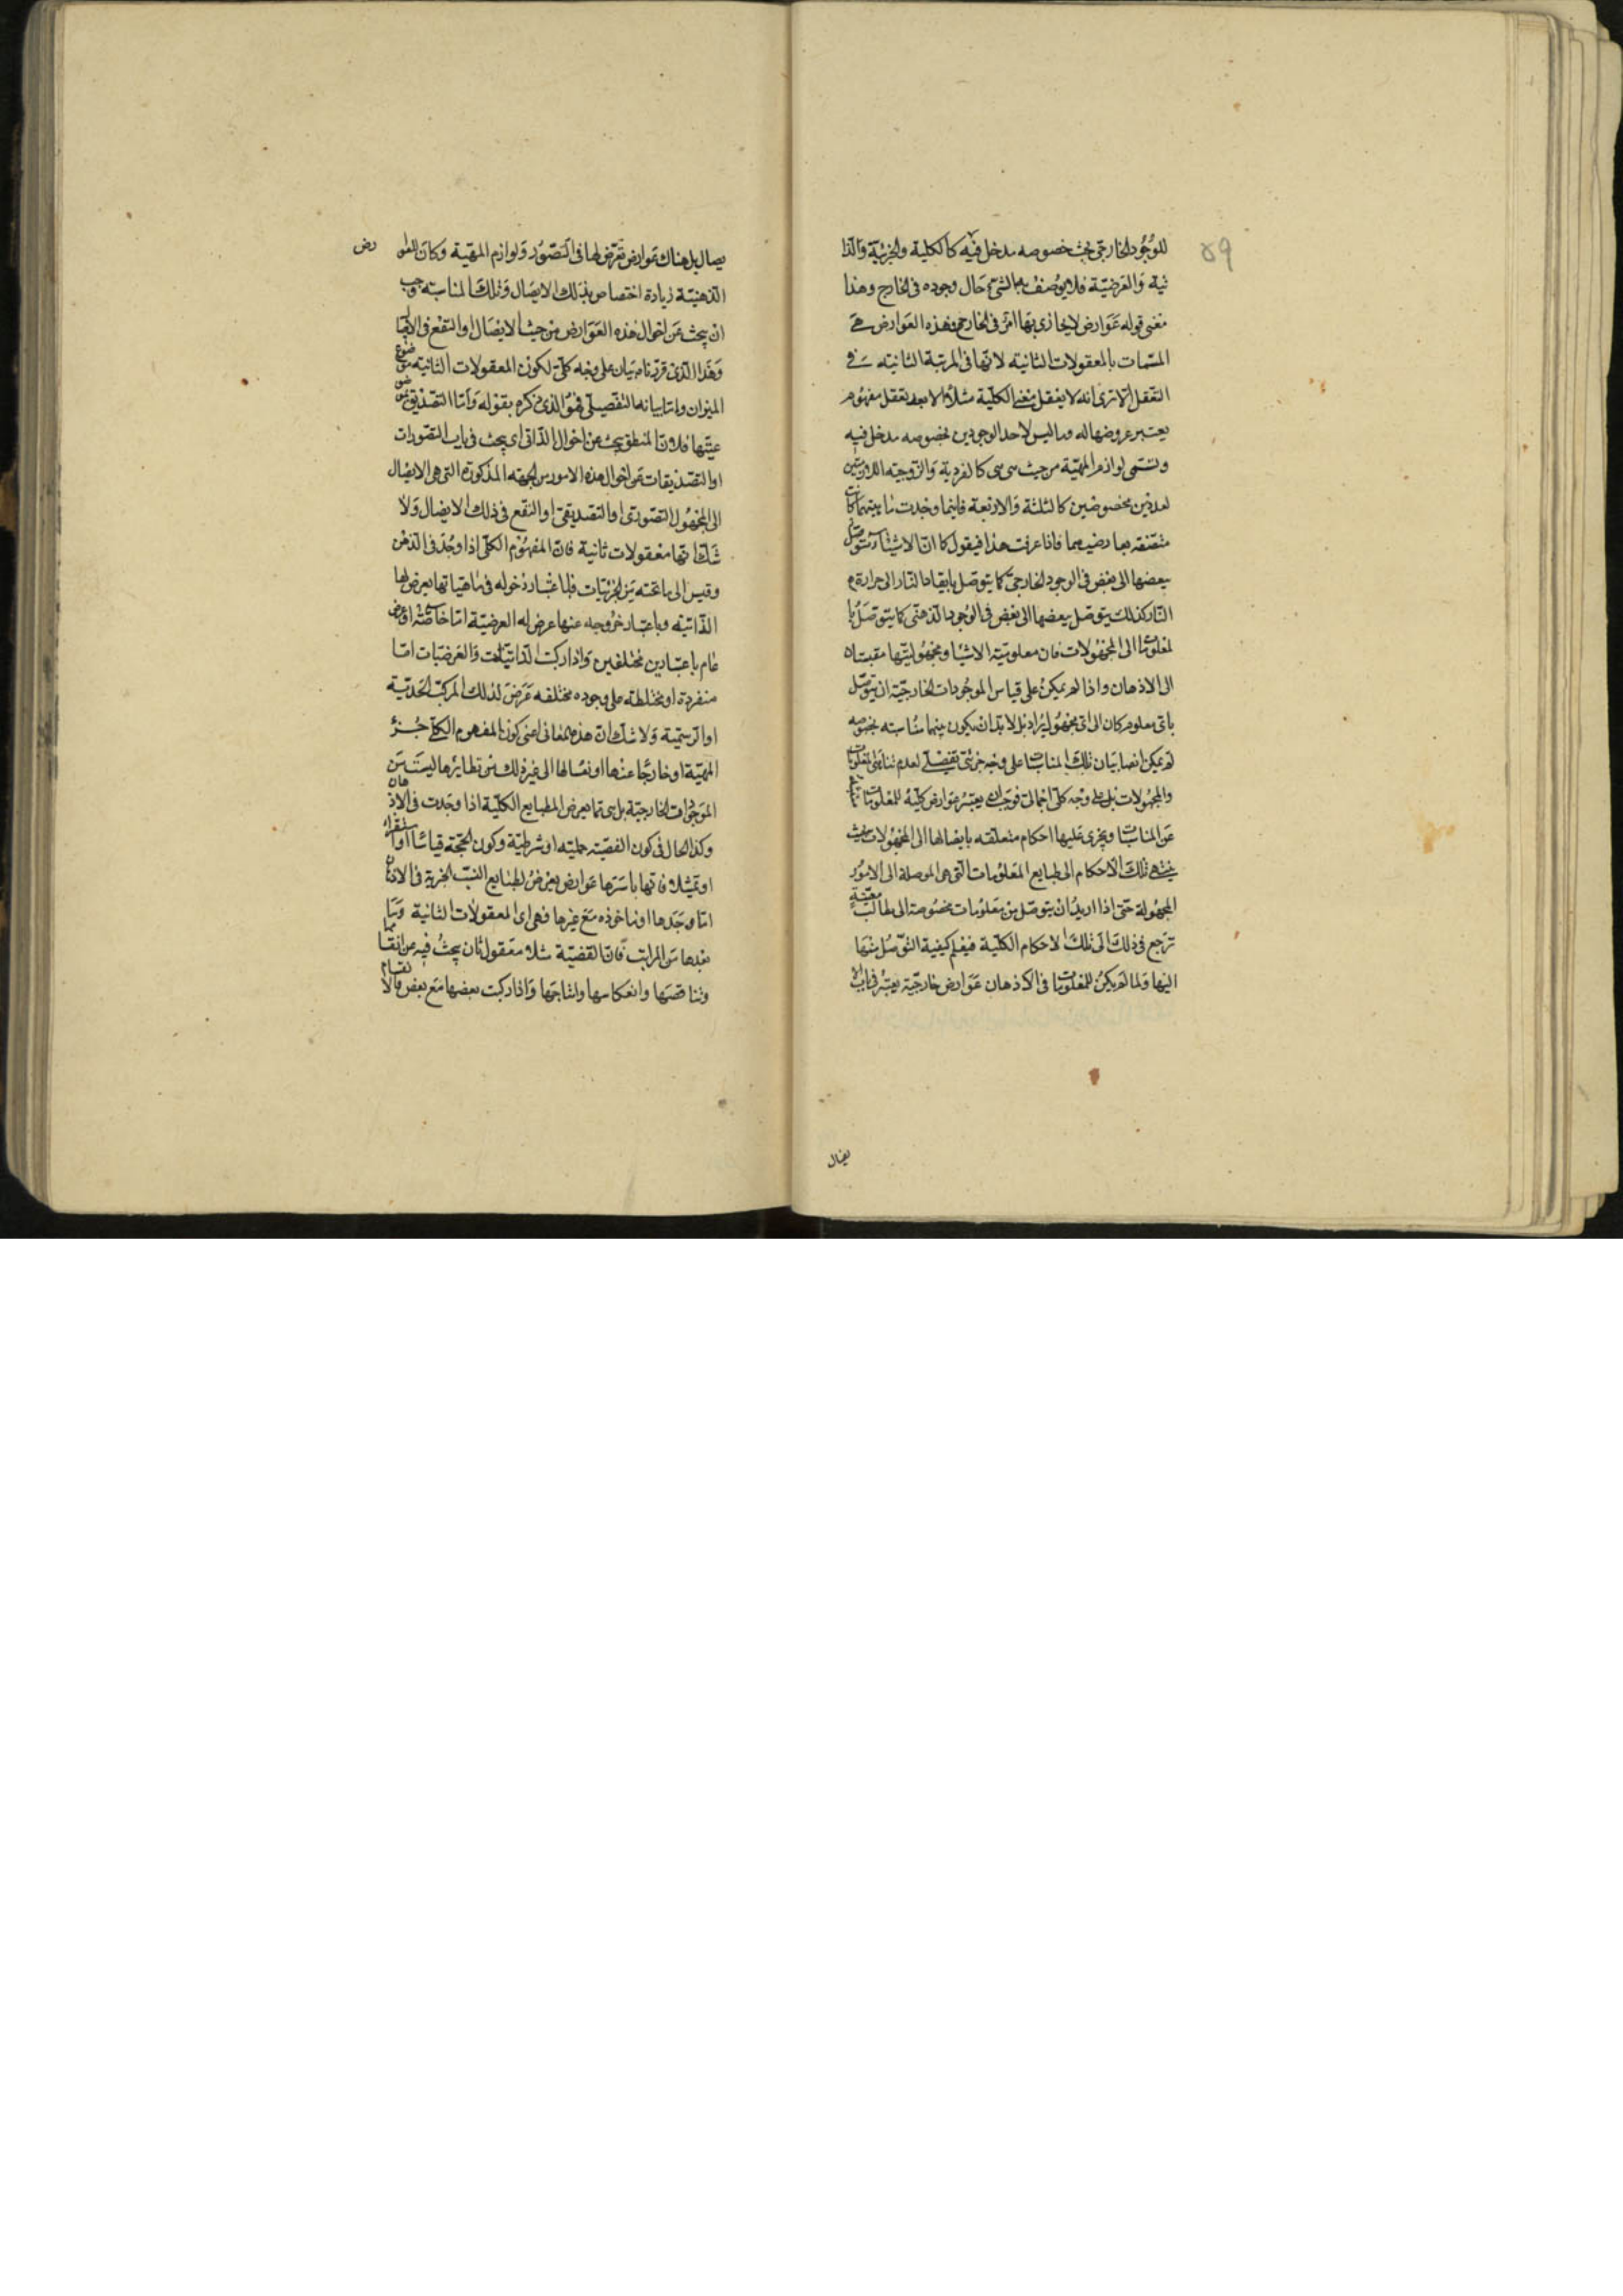 ٥٩
للوجود الخارجى بحسب خصوصه مدخل فيه كالكلية والجزئية والذا
تية والعرضية فلا يوصف بها الشئ حال وجوده فى الخارج وهذا
معنى قوله عوارض لا يحاذى بها امر فى الخارج فهذه العوارض هى
المسمات بالمعقولات الثانية لانها فى المرتبة الثانية من
التعقل الا ترى انه لا يعقل معنى الكلية مثلا الا بعد تعقل مفهوم
يعتبر عروضها له وما ليس لاحد الوجودين بخصوصه مدخل فيه
وتسمى لوازم المهية من حيث هى هى كالفردية والزوجية اللازمتين
لعددين مخصوصين كالثلثة والاربعة فاينما وجدت ماهيتهما كانت
متصفة بعارضيهما فاذا عرفت هذا فيقول كما ان الاشياء يتوصل
ببعضها الى بعض فى الوجود الخارجى كما يتوصل بايقاد النار الى حرارة
النار كذلك يتوصل ببعضها الى بعض فى الوجود الذهنى كما يتوصل با
لمعلومات الى المجهولات فان معلومية الاشيا ومجهوليتها مقيستان
الى الاذهان واذا لم يمكن على قياس الموجودات الخارجية ان يتوصل
باى معلوم كان الى اى مجهول يراد بل لا بد ان يكون بينهما مناسبة بخصوصه
لم يمكن ايضا بيان تلك المناسبات على وجه جزئى تفصيلى لعدم تناهى المعلومات
والمجهولات بل على وجه كلى اجمالى فوجب ان يعتبر عوارض كلية للمعلومات
عن المناسبات ويجرى عليها احكام متعلقة بايصالها الى المجهولات بحيث
ينتهى تلك الاحكام الى طبايع المعلومات التى هى الموصلة الى الامور
المجهولة حتى اذا اريد ان يتوصل من معلومات مخصوصة الى مطالب معينة
ترجع فى ذلك الى تلك الاحكام الكلية فيعلم كيفية التوصل منها
اليها ولما لم يكن للمعلومات فى الاذهان عوارض خارجية يعتبر فى باب الا
يصال
يصال بل هناك عوارض تعرض لها فى التصور ولوازم المهية وكان للعوا
رض
الذهنية زيادة اختصاص بذلك الايصال وتلك المناسبة وجب
ان يبحث عن احوال هذه العوارض من حيث الايصال او النفع فى الايصال
وهذا الذى قررناه بيان على وجه كلى لكون المعقولات الثانية موضوع
الميزان واما بيانه التفصيلى فهو الذى ذكره بقوله واما التصديق بموضو
عيتها فلان المنطق يبحث عن احوال الذاتى اى يبحث فى باب التصورات
او التصديقات عن احوال هذه الامور من الجهة المذكورة التى هى الايصال
الى المجهول التصورى او التصديقى او النفع فى ذلك الايصال ولا
شك انها معقولات ثانية فان المفهوم الكلى اذا وجد فى الذهن
وقيس الى ما تحته من الجزئيات فباعتبار دخوله فى ماهياتها يعرض لها
الذاتية وباعتبار خروجه عنها عرض له العرضية اما خاصة او عرض
عام باعتبارين مختلفين واذا ركبت الذاتيات والعرضيات اما
منفردة او مختلطة على وجوه مختلفة عرض لذلك المركب الحدية
او الرسمية ولا شك ان هذه المعانى اعنى كون المفهوم الكلى جزء
المهية او خارجا عنها او نفسا لها الى غير ذلك من نظايرها ليست من
الموجودات الخارجية بل هى مما يعرض للطبايع الكلية اذا وجدت فى الاذهان
وكذا الحال فى كون القضية حملية او شرطية وكون الحجة قياسا او استقراء
او تمثيلا فانها باسرها عوارض يعرض لطبايع النسب الجزئية فى الاذهان
اما وحدها او ماخوذه مع غيرها فهى اى المعقولات الثانية وما
بعدها من المراتب فان القضية مثلا معقول ثان يبحث فيه عن انقسامها
وتناقضها وانعكاسها وانتاجها واذا ركبت بعضها مع بعض فالانقسام